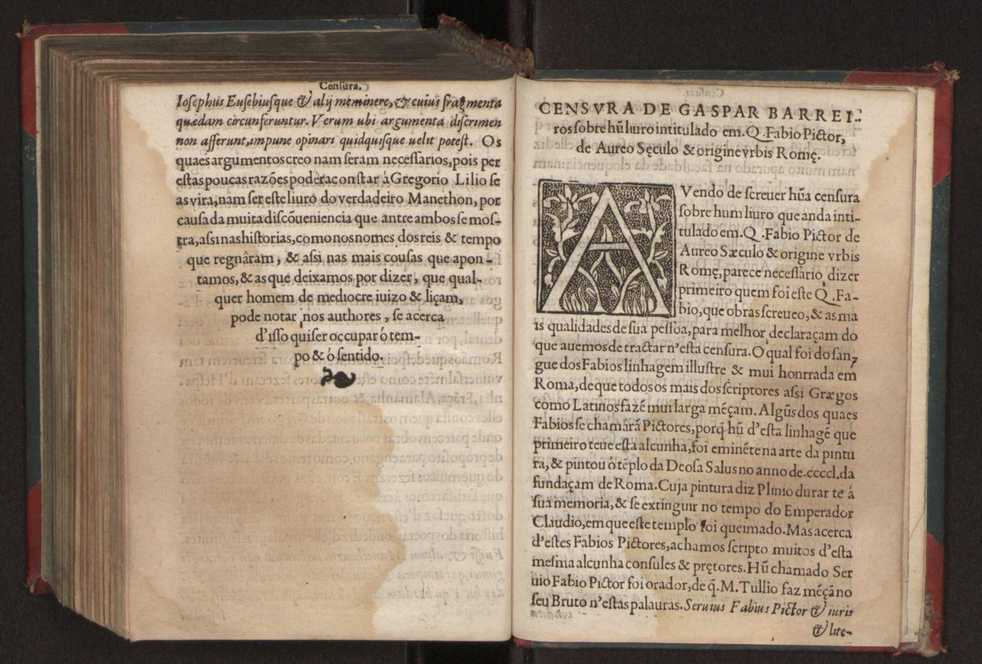 Censura.
Iosephus Eusebiusque & alij meminere, & cuius fragmenta
quædam circunferuntur. Verum ubi argumenta discrimen
non afferunt, impune opinari quidquisque uelit potest. Os
quaes argumentos creo nam seram necessarios, pois per
estas poucas razões poderâ constar à Gregorio Lilio se
as vira, nam ser este liuro do verdadeiro Manethon, por
causa da muita discõueniencia que antre ambos se mos-
tra, assi nas historias, como nos nomes dos reis & tempo
que regnâram, & assi nas mais cousas que apon-
tamos, & as que deixamos por dizer, que qual-
quer homem de mediocre juizo & liçam,
pode notar nos authores, se acerca
d'isso quiser occupar ò tem-
po & ò sentido.
CENSVRA DE GASPAR BARREI-
ros sobre hũ liuro intitulado em. Q. Fabio Pictor,
de Aureo Sęculo & origine vrbis Romę.
AVendo de screuer hũa censura
sobre hum liuro que anda inti-
tulado em. Q. Fabio Pictor de
Aureo Sæculo & origine vrbis
Romę, parece necessario dizer
primeiro quem foi este Q. Fa-
bio, que obras screueo, & as ma
is qualidades de sua pessoa, para melhor declaraçam do
que auemos de tractar n'esta censura. O qual foi do san-
gue dos Fabios linhagem illustre & mui honrrada em
Roma, de que todos os mais dos scriptores assi Grægos
como Latinos fazẽ mui larga mẽçam. Algũs dos quaes
Fabios se chamârã Pictores, porq̃ hũ d'esta linhagẽ que
primeiro teue esta alcunha, foi eminẽte na arte da pintu
ra, & pintou ò tẽplo da Deosa Salus no anno de .ccccl. da
fundaçam de Roma. Cuja pintura diz Plinio durar te â
sua memoria, & se extinguir no tempo do Emperador
Claudio, em que este templo foi queimado. Mas acerca
d'estes Fabios Pictores, achamos scripto muitos d'esta
mesma alcunha consules & prętores. Hũ chamado Ser
uio Fabio Pictor foi orador, de q̃. M. Tullio faz mẽçã no
seu Bruto n'estas palauras. Seruius Fabius Pictor & iuris
& lite-